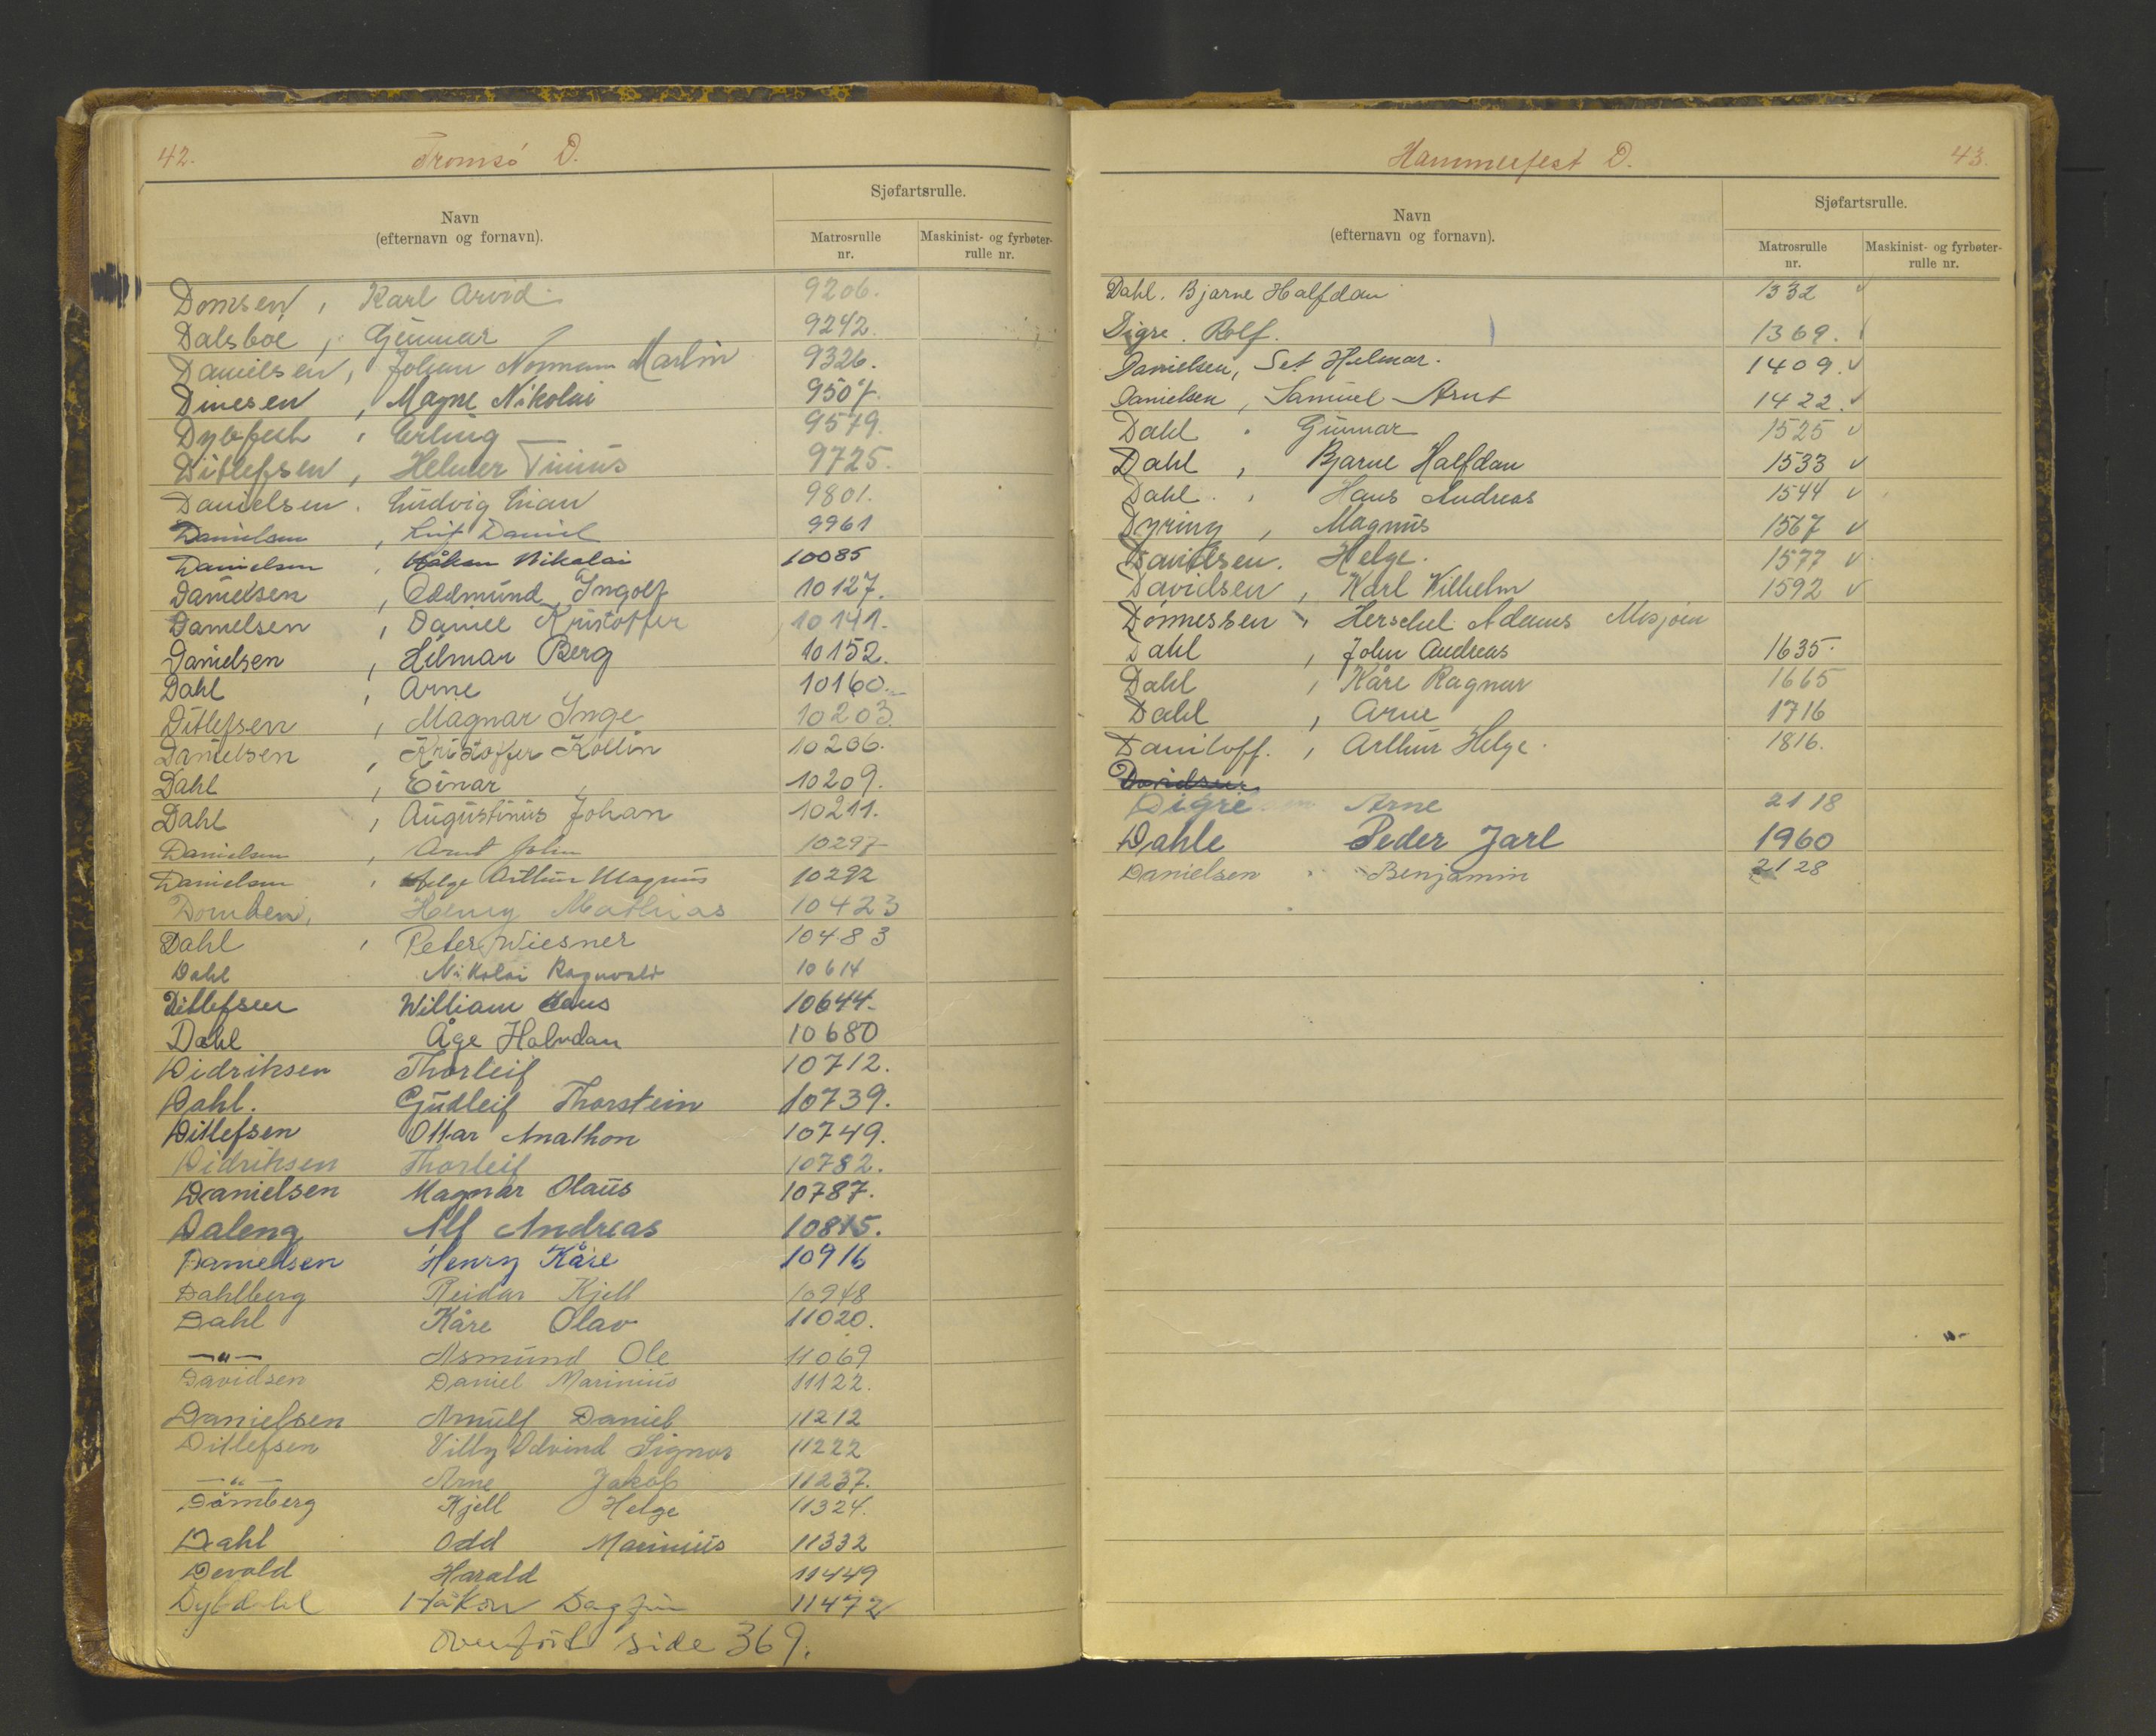 42.
Tromsö D.
Navn
(efternavn og fornavn).
Sjøfartsrulle.
Matrosrulle
nr.
Maskinist- og fyrbøter-
rulle nr.
Domsen, Karl Arvid 9206.
Dalsboe, Gunnar 9242.
Danielsen, Johan Normann Martin 9326.
Dinesen, Magne Nikolai 9507.
Erling 9579.
Ditlefsen, Helmer Tinius 9725.
Danielsen. Ludvig 9801.
Danielsen, Leif Daniel 9961
Danielsen, Håkon Nikolai 10085
Danielsen, Oddmund Ingolf 10127.
Danielsen, Daniel Kristoffer 10141.
Danielsen, Hilmar Berg 10152.
Dahl, Arne 10160.
Ditlefsen, Magnar Inge 10203.
Danielsen, Kristoffer Kollin 10206.
Dahl, Einar 10209.
Dahl, Augustinus Johan 10211.
Danielsen, Arnt John 10297
Danielsen, Helge Arthur Magnus 10292
Henry Mathias 10423
Dahl, Peter Wiesner 10483
Dahl Nikolai Ragnvald 10614
Ditlefsen William Hans 10644.
Dahl Åge Halvdan 10680
Didriksen Thorleif 10712.
Dahl. Gudleif Thorstein 10739.
Ditlefsen Ottar Anathon 10749.
Didriksen Thorleif 10782.
Danielsen Magnar Olaus 10787.
Daleng Alf Andreas 10815.
Danielsen Henry Kåre 10916
Dahlberg Reidar Kjell 10948
Dahl Kåre Olav 11020.
—"— Asmund Ole 11069
Davidsen Daniel Marinius 11122.
Danielsen Arnulf Daniel 11212
Ditlefsen Villy Edvind Signar 11222
—"— Arne Jakob 11237.
Dämberg Kjell Helge 11324.
Dahl Odd Marinius 11332
Devold Harald 11449
Dybdahl Håkon Dagfin 11472
Overfört side 369.
Hammerfest D.
43.
Navn
(efternavn og fornavn).
Sjøfartsrulle.
Matrosrulle
nr.
Maskinist- og fyrbøter-
rulle nr.
Dahl. Bjarne Halfdan 1332 ✓
Digre. Rolf. 1369.
Danielsen, Set Hilmar. 1409. ✓
Danielsen, Samuel Arnt 1422. ✓
Dahl. Gunnar 1525 ✓
Dahl, Bjarne Halfdan 1533 ✓
Dahl, Hans Andreas 1544 ✓
Dyring, Magnus 1567 ✓
Danielsen. Helge. 1577 ✓
Davidsen, Karl Vilhelm 1592 ✓
Dønnessen, Herschel Adams Mosjøen
Dahl, John Andreas 1635.
Dahl, Kåre Ragnar 1665
Dahl, Arne 1716
Daniloff, Arthur Helge. 1816.
Davidsen
Digre Arne 2118
Dahle Peder Jarl 1960
Danielsen Benjamin 2128